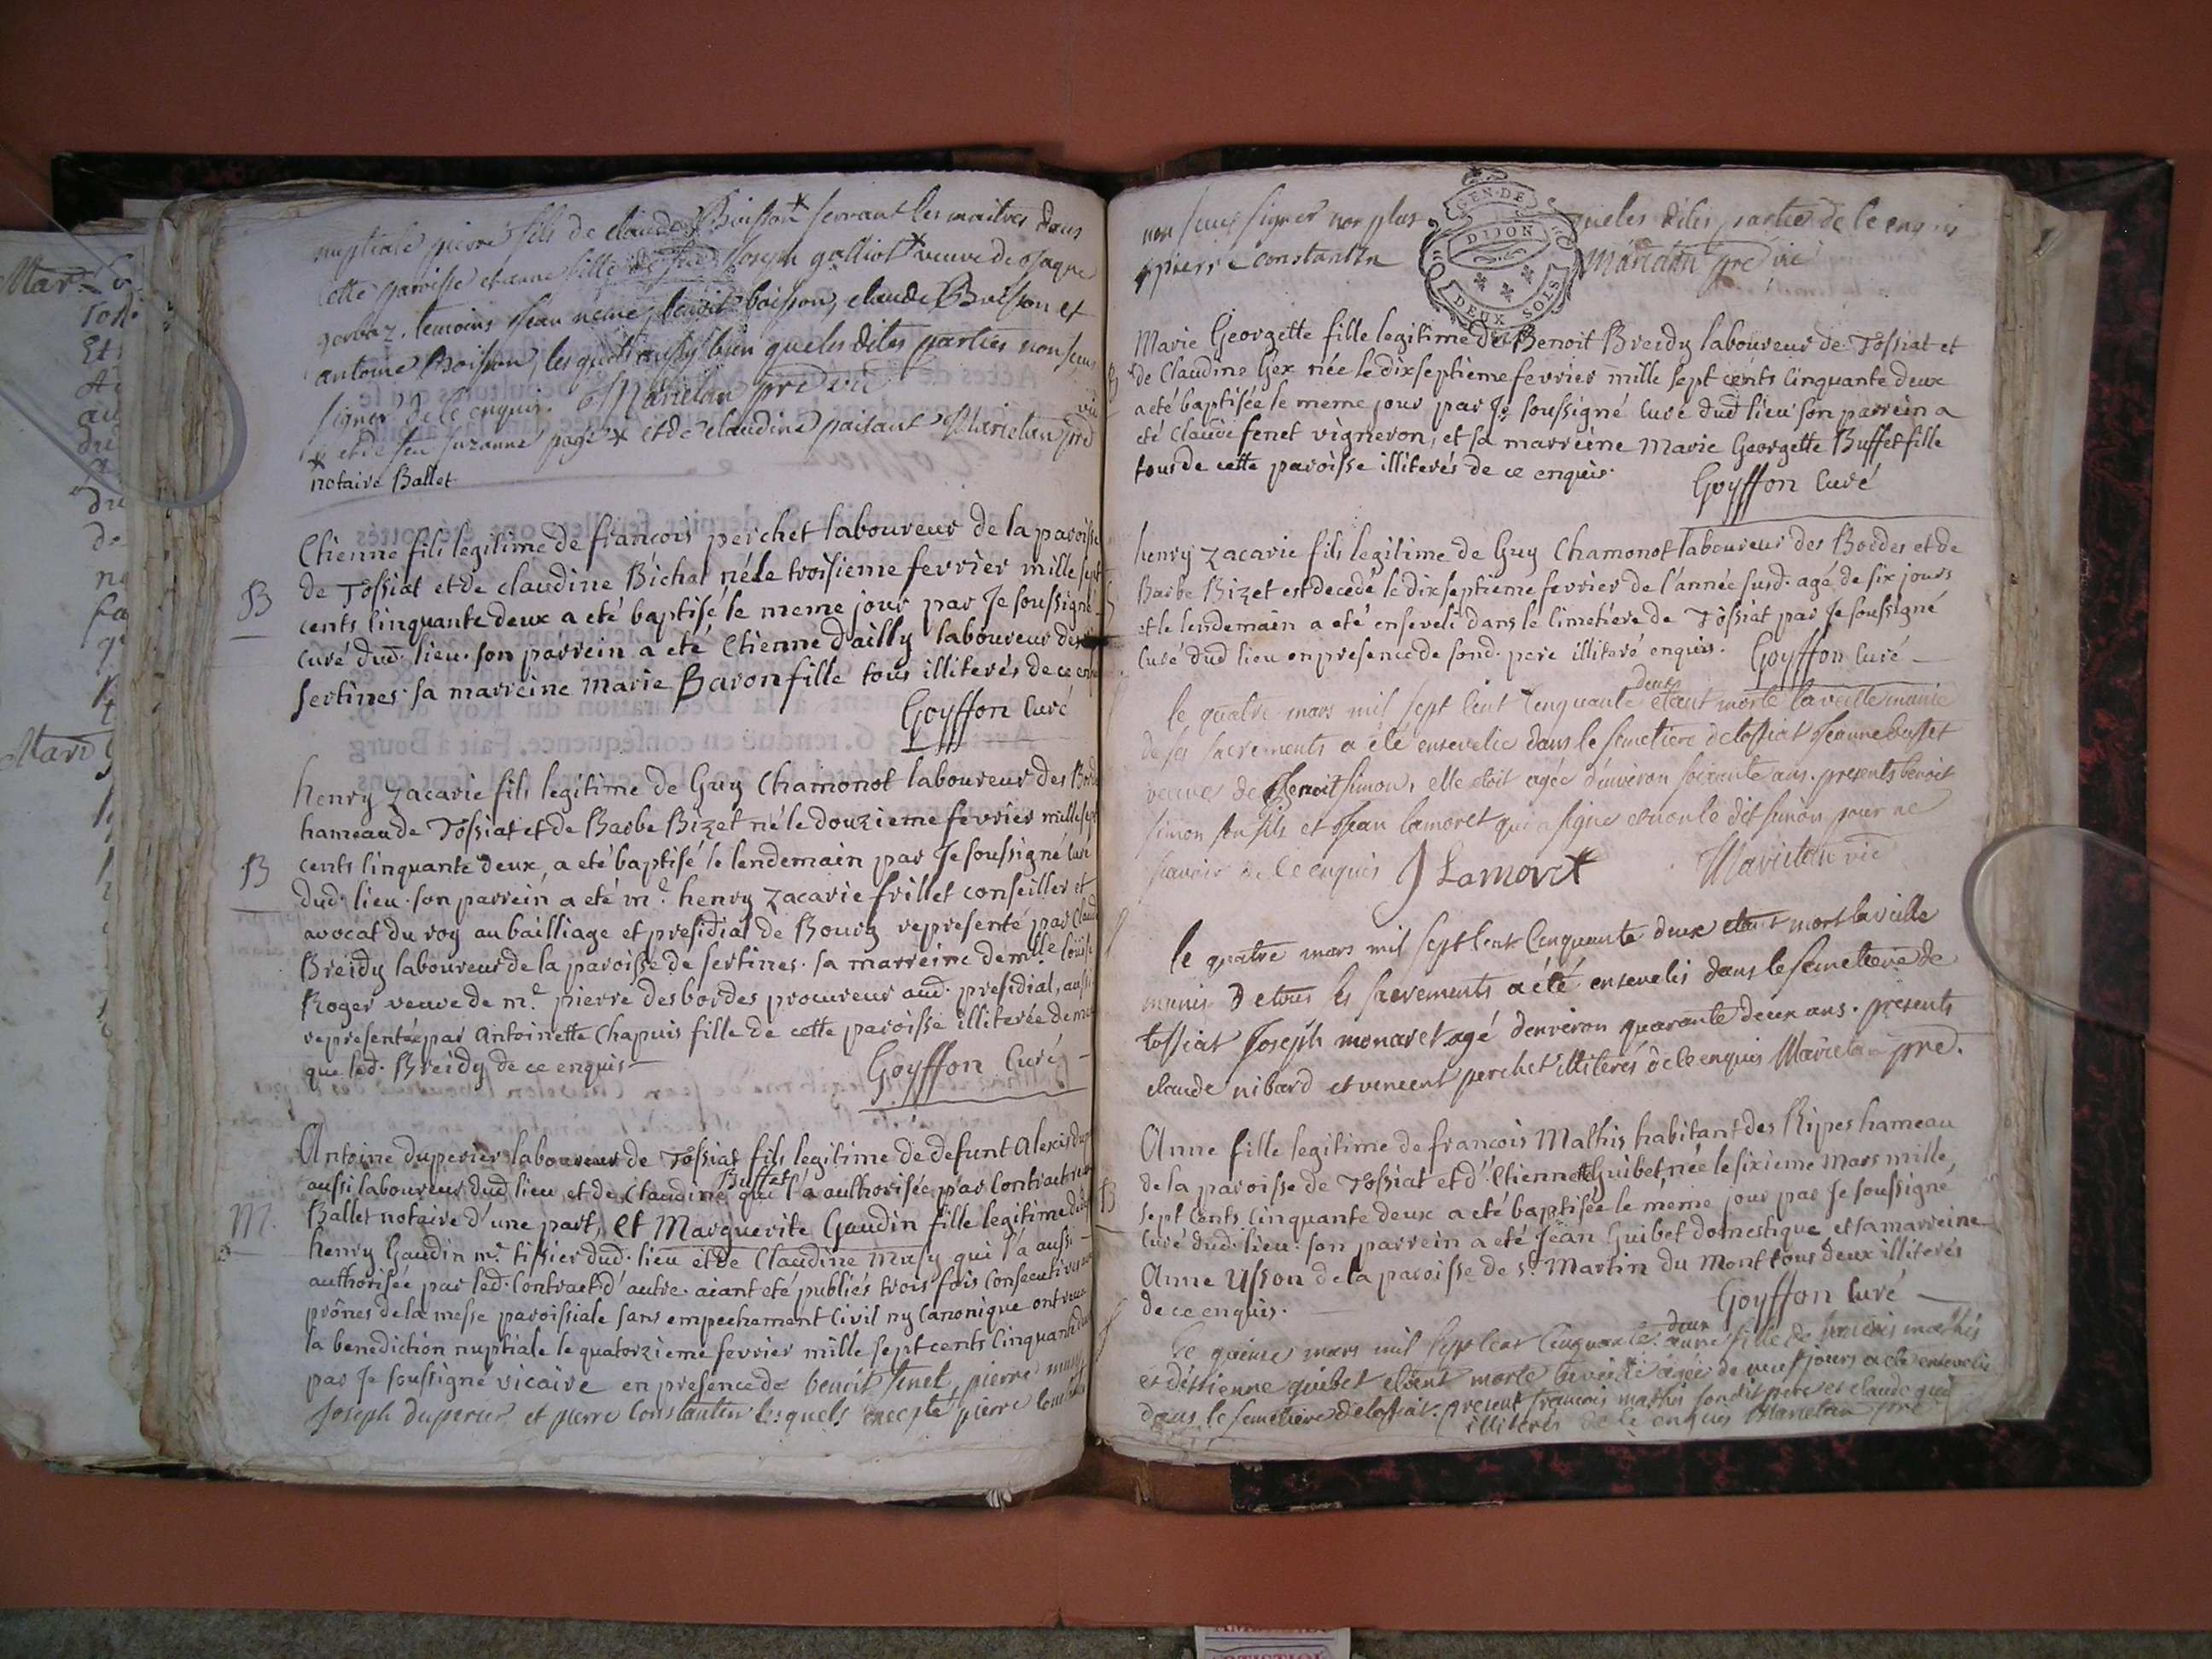 nuptiale pierre fils de claude Buisson x servant les maitres dans
cette paroisse et anne fille de feu Joseph galliot x veuve de
gerbaz. temoins Jean benoit boisson, claude Buisson et
antoine Boisson, lesquels aussy bien que les dites parties non sceus
signer de ce enquis. Marietan pre vic
x et de feu Suzanne page x et de claudine paisant Marietan pre vic
x
notaire Ballet
Etienne fils legitime de francois perchet laboureur de la paroisse
B
de Tossiat et de claudine Bichat né le troisieme fevrier mille sept
cents cinquante deux a eté baptisé le meme jour par Je soussigné
curé dud. lieu. son parrein a eté Etienne dailly laboureur de
sertines. sa marreine Marie Baron fille tous illiterés de ce enq
Goyffon Curé
henry zacarie fils legitime de Guy Chamonot laboureur des Bord
hameau de Tossiat et de Barbe Bizet né le douzieme fevrier mille sept
B
cents cinquante deux, a eté baptisé le lendemain par Je soussigné Curé
dud. lieu. son parrein a eté mr. henry zacarie frillet conseiller et
avocat du roy au bailliage et presidial de Bourg representé par Claude
Breidy laboureur de la paroisse de sertines. sa marreine demlle Louise
Roger veuve de mr. pierre desbordes procureur aud. presidial, aussi
representée par Antoinette Chapuis fille de cette paroisse illiterée de me
que led. Breidy de ce enquis
Goyffon Curé
Antoine duperier laboureur de Tossiat fils legitime de defunt Alexis dup
aussi laboureur dud. lieu et de Claudine Buffet qui l'a authorisée par Contract
M.
Ballet notaire d'une part, et Marguerite Gaudin fille legitime de
henry Gaudin mr. tissier dud. lieu et de Claudine Musy qui l'a aussi
authorisée par led. Contract d'autre. aiant eté publiés trois fois Consecutives
prônes de la messe paroissiale sans empechement Civil ny Canonique ont
la benediction nuptiale le quatorzieme fevrier mille sept cents Cinquante
par Je soussigné vicaire en presence de benoit fenet, pierre musy
Joseph duperier et pierre Constantin lesquels excepté pierre Const
non sceus signer non plus que les dites parties de ce enquis
pierre constantin
Marietan pre vic
GEN. DE
DIJON
DEUX SOLS
Marie Georgette fille legitime de Benoit Breidy laboureur de Tossiat et
B
de Claudine Gex née le dixseptieme fevrier mille sept cents Cinquante deux
a eté baptisée le meme jour par Je soussigné Curé dud. lieu son parrein a
eté Claude fenet vigneron, et sa marreine Marie Georgette Buffet fille
tous de cette paroisse illiterés de ce enquis.
Goyffon Curé
henry zacarie fils legitime de Guy Chamonot laboureur des Bordes et de
Barbe Bizet est decedé le dixseptieme fevrier de l'année susd. agé de six jours
et le lendemain a eté enseveli dans le Cimetiere de Tossiat par Je soussigné
Curé dud. lieu en presence de sond. pere illiteré enquis. Goyffon Curé
le quatre mars mil sept cent Cinquante deux etant morte la veille munie
de ses sacrements a eté ensevelie dans le semetiere de tossiat Jeanne buffet
veuve de Benoit simon, elle etoit agée d'environ soixante ans. presents benoit
simon son fils et Jean lamoret qui a signé et non le dit simon pour ne
scavoir de ce enquis J Lamoret Marietan vic
le quatre mars mil sept cent Cinquante deux etant mort la veille
munis de tous les sacrements a eté ensevelis dans le semetiere de
tossiat Joseph monaret agé d'environ quarante deux ans. presents
claude nibard et vincent perchet illiterés de ce enquis Marietan pre.
Anne fille legitime de francois Mathis habitant des Ripes hameau
de la paroisse de Tossiat et d'Etiennette Guibet née le sixieme Mars mille
B
sept cents Cinquante deux a eté baptisée le meme jour par Je soussigné
Curé dud. lieu. son parrein a eté Jean Guibet domestique et sa marreine
Anne Usson de la paroisse de St. Martin du Mont tous deux illiterés
de ce enquis.
Goyffon Curé
le quinze mars mil sept cent Cinquante deux anne fille de francois mathis
et d'etienne guibet etant morte la veille agée de neuf jours a eté ensevelie
dans le semetiere de tossiat. present francois mathis son dit pere et claude
illiterés de ce enquis Marietan pre